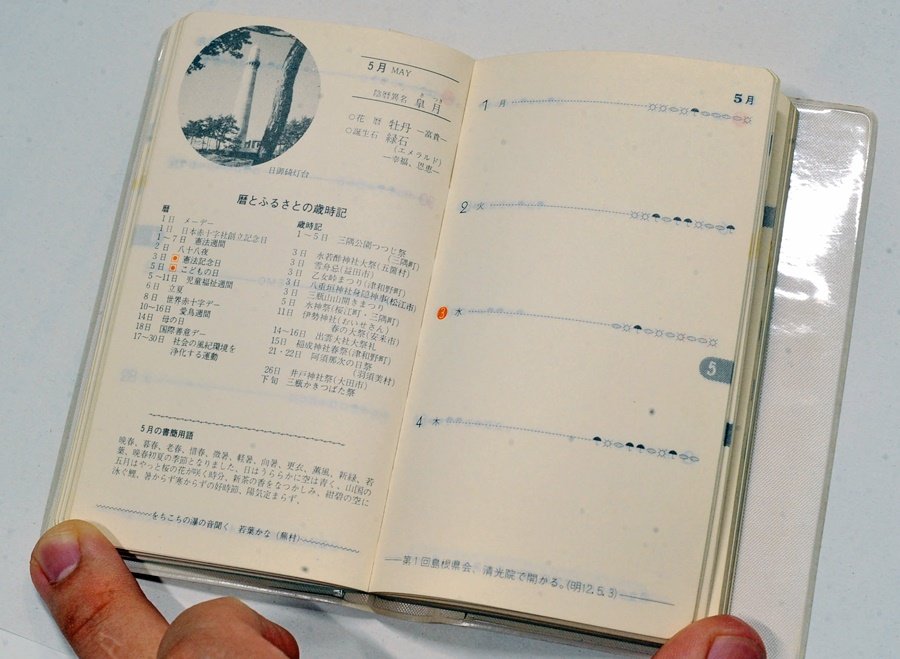 5月 MAY
陰暦異名 皐月
さつき
○花 暦 牡丹 ―富貴―
○誕生石 緑石
(エメラルド)
―幸福、恩恵―
日御碕灯台
暦とふるさとの歳時記
暦
1日 メーデー
1日 日本赤十字社創立記念日
1〜7日 憲法週間
2日 八十八夜
3日 憲法記念日
5日 こどもの日
5〜11日 児童福祉週間
6日 立夏
8日 世界赤十字デー
10〜16日 愛鳥週間
14日 母の日
18日 国際善意デー
17〜30日 社会の風紀環境を
浄化する運動
歳時記
1〜5日 三隅公園つつじ祭
(三隅町)
3日 水若酢神社大祭(五箇村)
3日 雪舟忌(益田市)
3日 乙女峠まつり(津和野町)
3日 八重垣神社身隠神事(松江市)
3日 三瓶山山開きまつり
5日 水神祭(桜江町・三隅町)
11日 伊勢神社(おいせさん)
春の大祭(安来市)
14〜16日 出雲大社大祭礼
15日 稲成神社春祭(津和野町)
21・22日 阿須那次の日祭
(羽須美村)
26日 井戸神社祭(大田市)
下旬 三瓶かきつばた祭
5月の書簡用語
晩春、暮春、老春、惜春、微暑、軽暑、向暑、更衣、薫風、新緑、若
葉、晩春初夏の季節となりました、日はうららかに空は青く。山国の
五月はやっと桜の花が咲く時分、新茶の香をなつかしみ、紺碧の空に
泳ぐ鯉、暑からず寒からずの好時節、陽気定まらず、
をちこちの瀑の音聞く 若葉かな(蕪村)
5月
1 月
2 火
3 水
5
4 木
第1回島根県会、清光院で開かる。(明12.5.3)